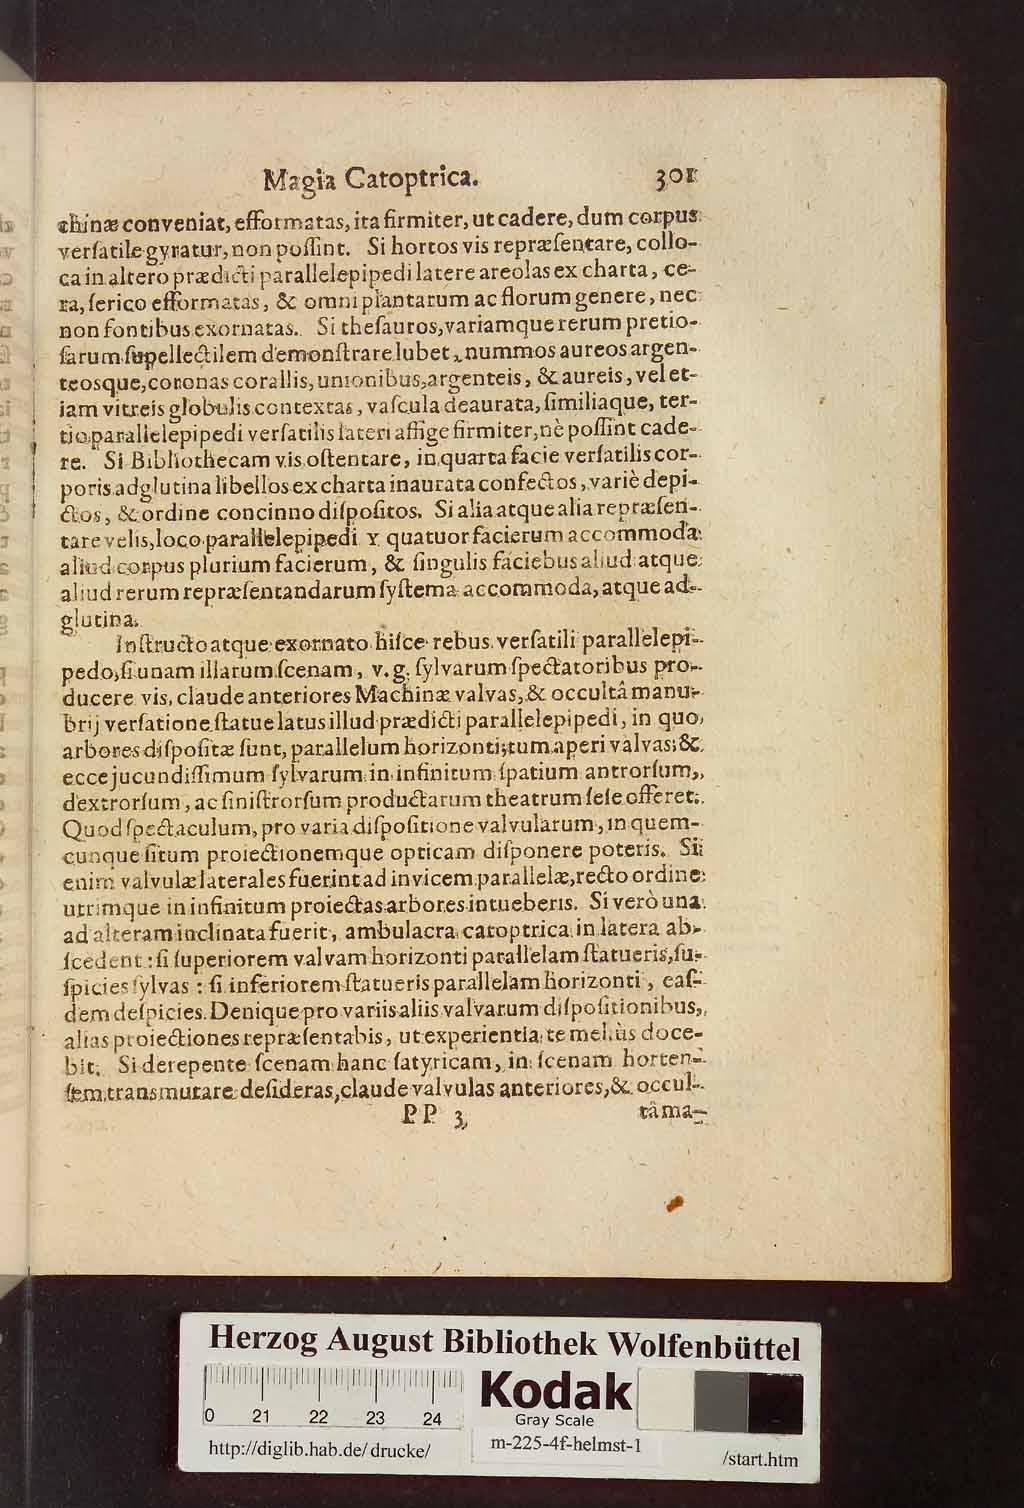 Magia Catoptrica. 301
chinæ conveniat, efformatas, ita firmiter, ut cadere, dum corpus
verſatile gyratur, non poſſint. Si hortos vis repræſentare, collo-
ca in altero prædicti parallelepipedi latere areolas ex charta, ce-
ra, ſerico efformatas, & omni plantarum ac florum genere, nec
non fontibus exornatas. Si theſauros, variamque rerum pretio-
ſarum ſupellectilem demonſtrare lubet, nummos aureos argen-
teosque, coronas corallis, unionibus, argenteis, & aureis, vel et-
iam vitreis globulis contextas, vaſcula deaurata, ſimiliaque, ter-
tio parallelepipedi verſatilis lateri affige firmiter, nè poſſint cade-
re. Si Bibliothecam vis oſtentare, in quarta facie verſatilis cor-
poris adglutina libellos ex charta inaurata confectos, variè depi-
ctos, & ordine concinno diſpoſitos. Si alia atque alia repræſen-
tare velis, loco parallelepipedi Y quatuor facierum accommoda
aliud corpus plurium facierum, & ſingulis faciebus aliud atque
aliud rerum repræſentandarum ſyſtema accommoda, atque ad-
glutina.
Inſtructo atque exornato hiſce rebus verſatili parallelepi-
pedo, ſi unam illarum ſcenam, v. g. ſylvarum ſpectatoribus pro-
ducere vis, claude anteriores Machinæ valvas, & occultâ manu-
brij verſatione ſtatue latus illud prædicti parallelepipedi, in quo
arbores diſpoſitæ ſunt, parallelum horizonti; tum aperi valvas; &
ecce jucundiſſimum ſylvarum in infinitum ſpatium antrorſum,
dextrorſum, ac ſiniſtrorſum productarum theatrum ſeſe offeret.
Quod ſpectaculum, pro varia diſpoſitione valvularum, in quem-
cunque ſitum proiectionemque opticam diſponere poteris. Si
enim valvulæ laterales fuerint ad invicem parallelæ, recto ordine
utrimque in infinitum proiectas arbores intueberis. Si verò una
ad alteram inclinata fuerit, ambulacra catoptrica in latera ab-
ſcedent: ſi ſuperiorem valvam horizonti parallelam ſtatueris, ſu-
ſpicies ſylvas: ſi inferiorem ſtatueris parallelam horizonti, eaſ-
dem deſpicies. Denique pro variis aliis valvarum diſpoſitionibus,
alias proiectiones repræſentabis, ut experientia te meliùs doce-
bit. Si derepente ſcenam hanc ſatyricam, in ſcenam horten-
ſem transmutare deſideras, claude valvulas anteriores, & occul-
PP 3 tâ ma-
Herzog August Bibliothek Wolfenbüttel
0 21 22 23 24
Kodak
Gray Scale
http://diglib.hab.de/drucke/ m-225-4f-helmst-1 /start.htm